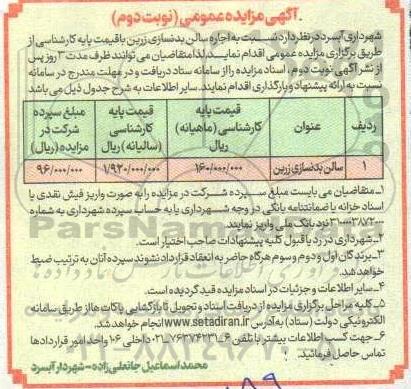 آگهی مزایده عمومی (نوبت دوم)
شهرداری آبسرد در نظر دارد نسبت به اجاره سالن بدنسازی زرین با قیمت پایه کارشناسی از
طریق برگزاری مزایده عمومی اقدام نماید. لذا متقاضیان می توانند ظرف مدت ۳ روز پس
از نشر آگهی نوبت دوم، اسناد مزایده را از سامانه ستاد دریافت و در مهلت مندرج در سامانه
نسبت به ارائه پیشنهاد و بارگذاری اقدام نمایند. سایر اطلاعات به شرح جدول ذیل می باشد
ردیف عنوان قیمت پایه کارشناسی (ماهیانه) ریال قیمت پایه کارشناسی (سالیانه) ریال مبلغ سپرده شرکت در مزایده (ریال)
۱ سالن بدنسازی زرین ۱۶۰/۰۰۰/۰۰۰ ۱/۹۲۰/۰۰۰/۰۰۰ ۹۶/۰۰۰/۰۰۰
۱- متقاضیان می بایست مبلغ سپرده شرکت در مزایده را به صورت واریز فیش نقدی یا
اسناد خزانه یا ضمانتنامه بانکی در وجه شهرداری یا به حساب سپرده شهرداری به شماره
نزد بانک ملی واریز نمایند.
۲- شهرداری در رد یا قبول کلیه پیشنهادات صاحب اختیار است.
۳- برندگان اول و دوم و سوم هرگاه حاضر به انعقاد قرارداد نشوند سپرده آنان به ترتیب ضبط
خواهد شد.
۴- سایر اطلاعات و جزئیات در اسناد مزایده قید گردیده است.
۵- کلیه مراحل برگزاری مزایده از دریافت اسناد و تحویل تا بازگشایی پاکات ها از طریق سامانه
الکترونیکی دولت (ستاد) به آدرس www.setadiran.ir انجام خواهد شد.
۶- جهت کسب اطلاعات بیشتر با تلفن ۶-۰۲۱۷۶۳۷۴۲۳۱ داخلی ۱۰۶ واحد امور قراردادها
تماس حاصل فرمائید.
محمد اسماعیل جانعلی زاده - شهردار آبسرد